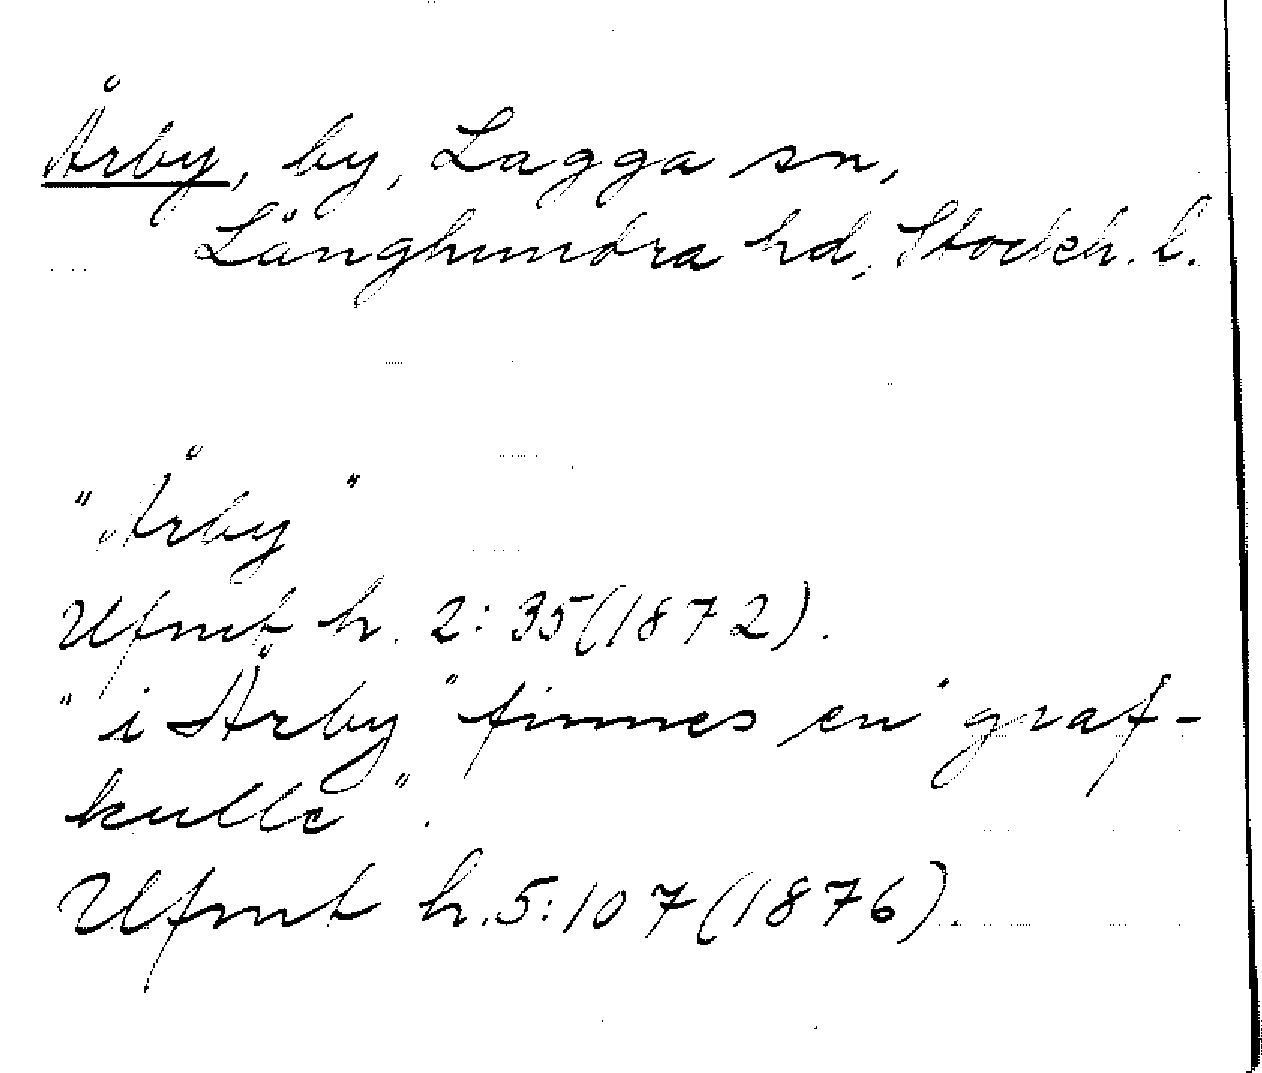 Årby, by, Lagga sn,
Långhundra hd, Stockh. l.
"Årby"
Ufmt h. 2:35(1872).
"i Årby" finnes en "graf-
kulle".
Ufmt h.5:107(1876).